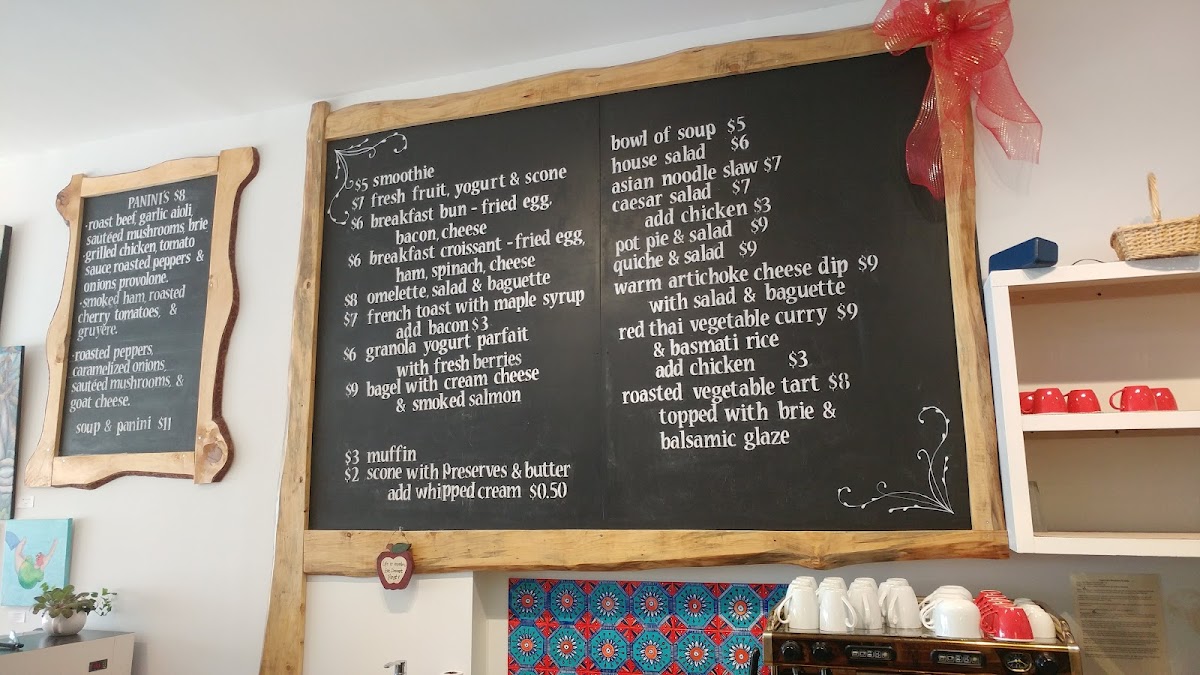 PANINI'S $8
·roast beef, garlic aioli,
sautéed mushrooms, brie
·grilled chicken, tomato
sauce roasted peppers &
onions provolone.
·smoked ham, roasted
cherry tomatoes, &
gruyère.
·roasted peppers,
caramelized onions,
sautéed mushrooms, &
goat cheese.
soup & panini $11
$5 smoothie
$7 fresh fruit, yogurt & scone
$6 breakfast bun - fried egg,
bacon, cheese
$6 breakfast croissant - fried egg,
ham, spinach, cheese
$8 omelette, salad & baguette
$7 french toast with maple syrup
add bacon $3
$6 granola yogurt parfait
with fresh berries
$9 bagel with cream cheese
& smoked salmon
$3 muffin
$2 scone with preserves & butter
add whipped cream $0.50
bowl of soup $5
house salad $6
asian noodle slaw $7
caesar salad $7
add chicken $3
pot pie & salad $9
quiche & salad $9
warm artichoke cheese dip $9
with salad & baguette
red thai vegetable curry $9
& basmati rice
add chicken $3
roasted vegetable tart $8
topped with brie &
balsamic glaze